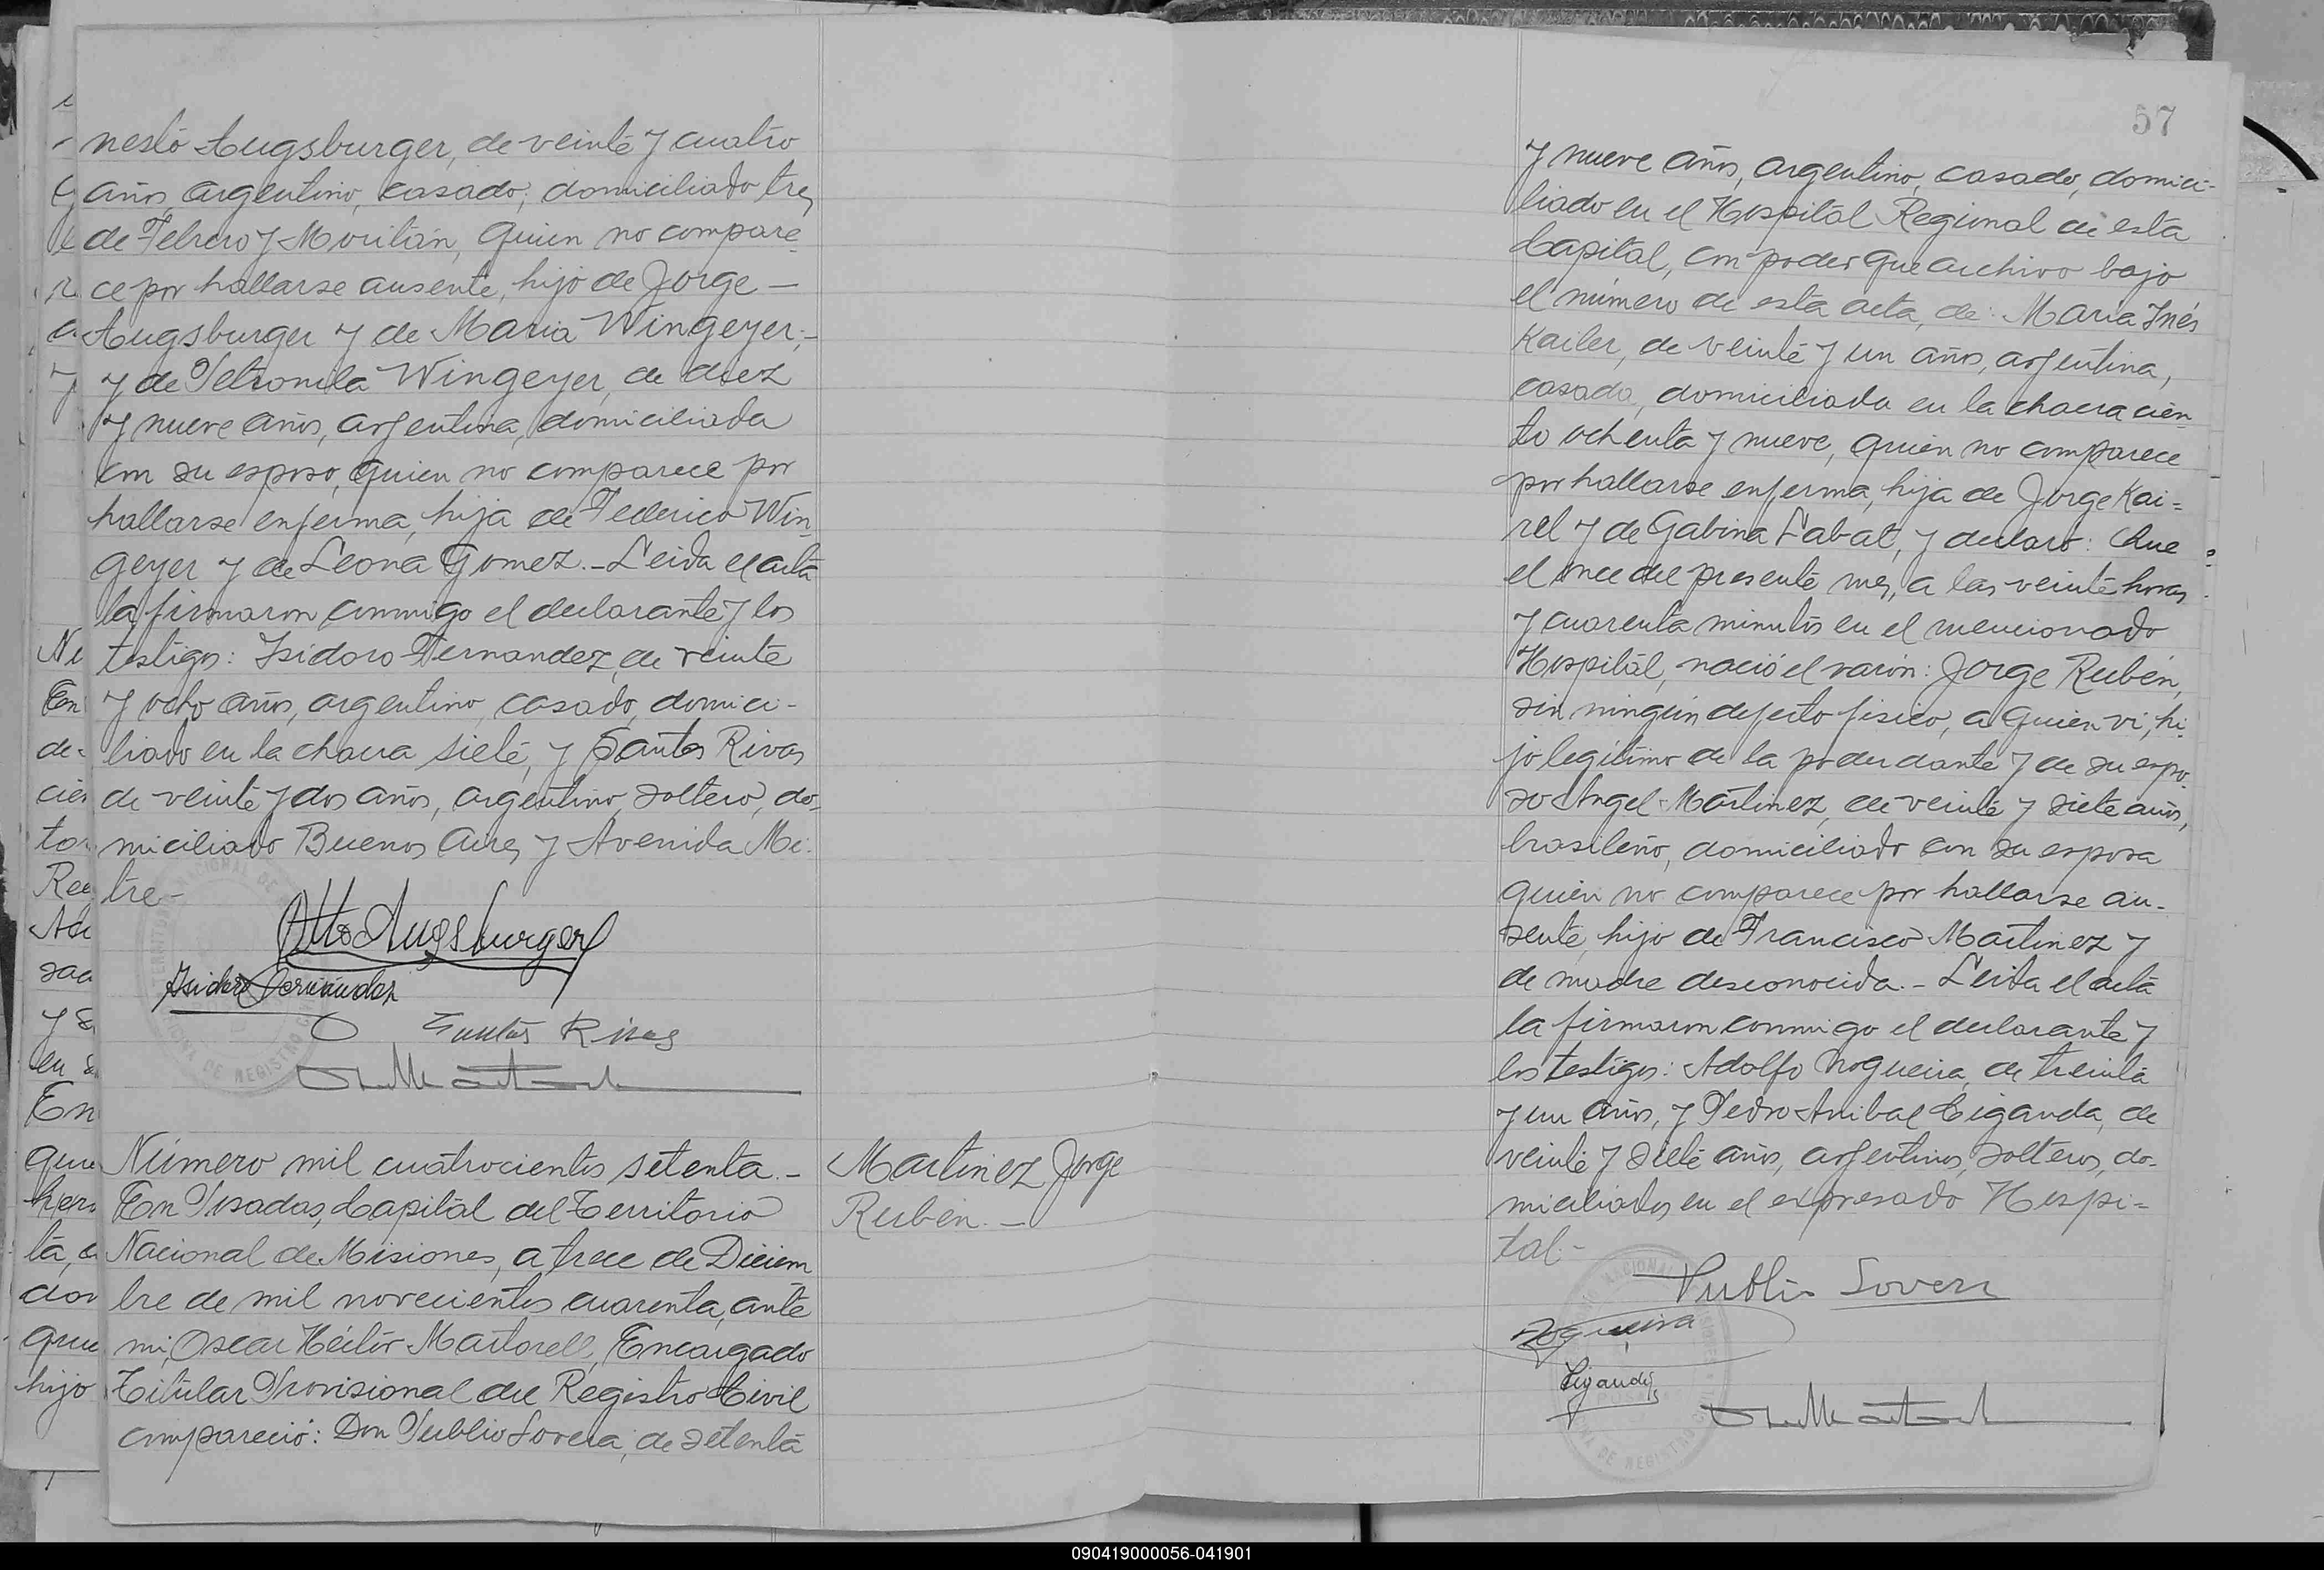 nesto Augsburger, de veinte y cuatro
años, argentino, casado, domiciliado tres
de Febrero y Moritán, quien no compare-
ce por hallarse ausente, hijo de Jorge —
Augsburger y de Maria Wingeyer;-
y de Petronila Wingeyer, de diez
y nueve años, argentina, domiciliada
con su esposo, quien no comparece por
hallarse enferma, hija de Federico Win-
geyer y de Leona Gomez.- Leida el acta
la firmaron conmigo el declarante y los
testigos: Isidoro Fernandez, de veinte
y ocho años, argentino, casado, domici-
liado en la chacra siete, y Santos Rivas
de veinte y dos años, argentino, soltero, do-
miciliado Buenos Aires y Avenida Mi-
tre-
Otto Augsburger
Isidoro Fernández
Santos Rivas
OFICINA DE REGISTRO
Número mil cuatrocientos setenta.-
En Posadas, Capital del Territorio
Nacional de Misiones, a trece de Diciem
bre de mil novecientos cuarenta, ante
mi, Oscar Héctor Martorell, Encargado
Titular Provisional del Registro Civil
compareció: Don Publio Lovera, de setenta
Martinez Jorge
Rubén.-
57
y nueve años, argentino, casado, domici-
liado en el Hospital Regional de esta
Capital, con poder que archivo bajo
el número de esta acta, de: Maria Inés
Kailer, de veinte y un años, argentina,
casada, domiciliada en la chacra cien-
to ochenta y nueve, quien no comparece
por hallarse enferma, hija de Jorge Kai-
rel y de Gabina Labat, y declaró: Que
el once del presente mes, a las veinte horas
y cuarenta minutos en el mencionado
Hospital, nació el varón: Jorge Rubén,
sin ningún defecto fisico, a quien vi, hi-
jo legitimo de la poderdante y de su espo-
so Angel Martinez, de veinte y siete años,
brasileño, domiciliado con su esposa
quien no comparece por hallarse au-
sente, hijo de Francisco Martinez y
de madre desconocida.- Leida el acta
la firmaron conmigo el declarante y
los testigos: Adolfo Nogueira, de treinta
y un años, y Pedro Anibal Ciganda, de
veinte y siete años, argentinos, solteros, do-
miciliados en el expresado Hospi-
tal.-
Publio Lovera
Nogueira
Ciganda
090419000056-041901